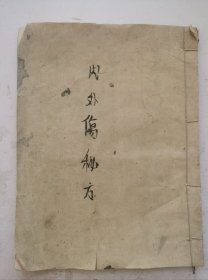 内外傷秘方